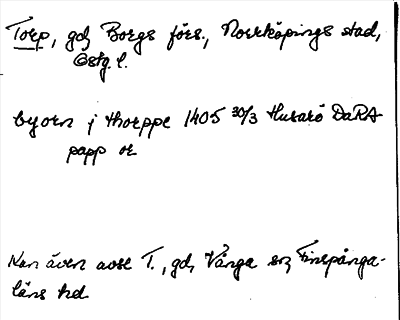 Torp, gd, Borgs förs., Norrköpings stad,
Östg. l.
byorn j thorppe 1405 30/3 Husarö DaRA
papp or
Kan även avse T., gd, Vånga sn, Finspånga-
läns hd